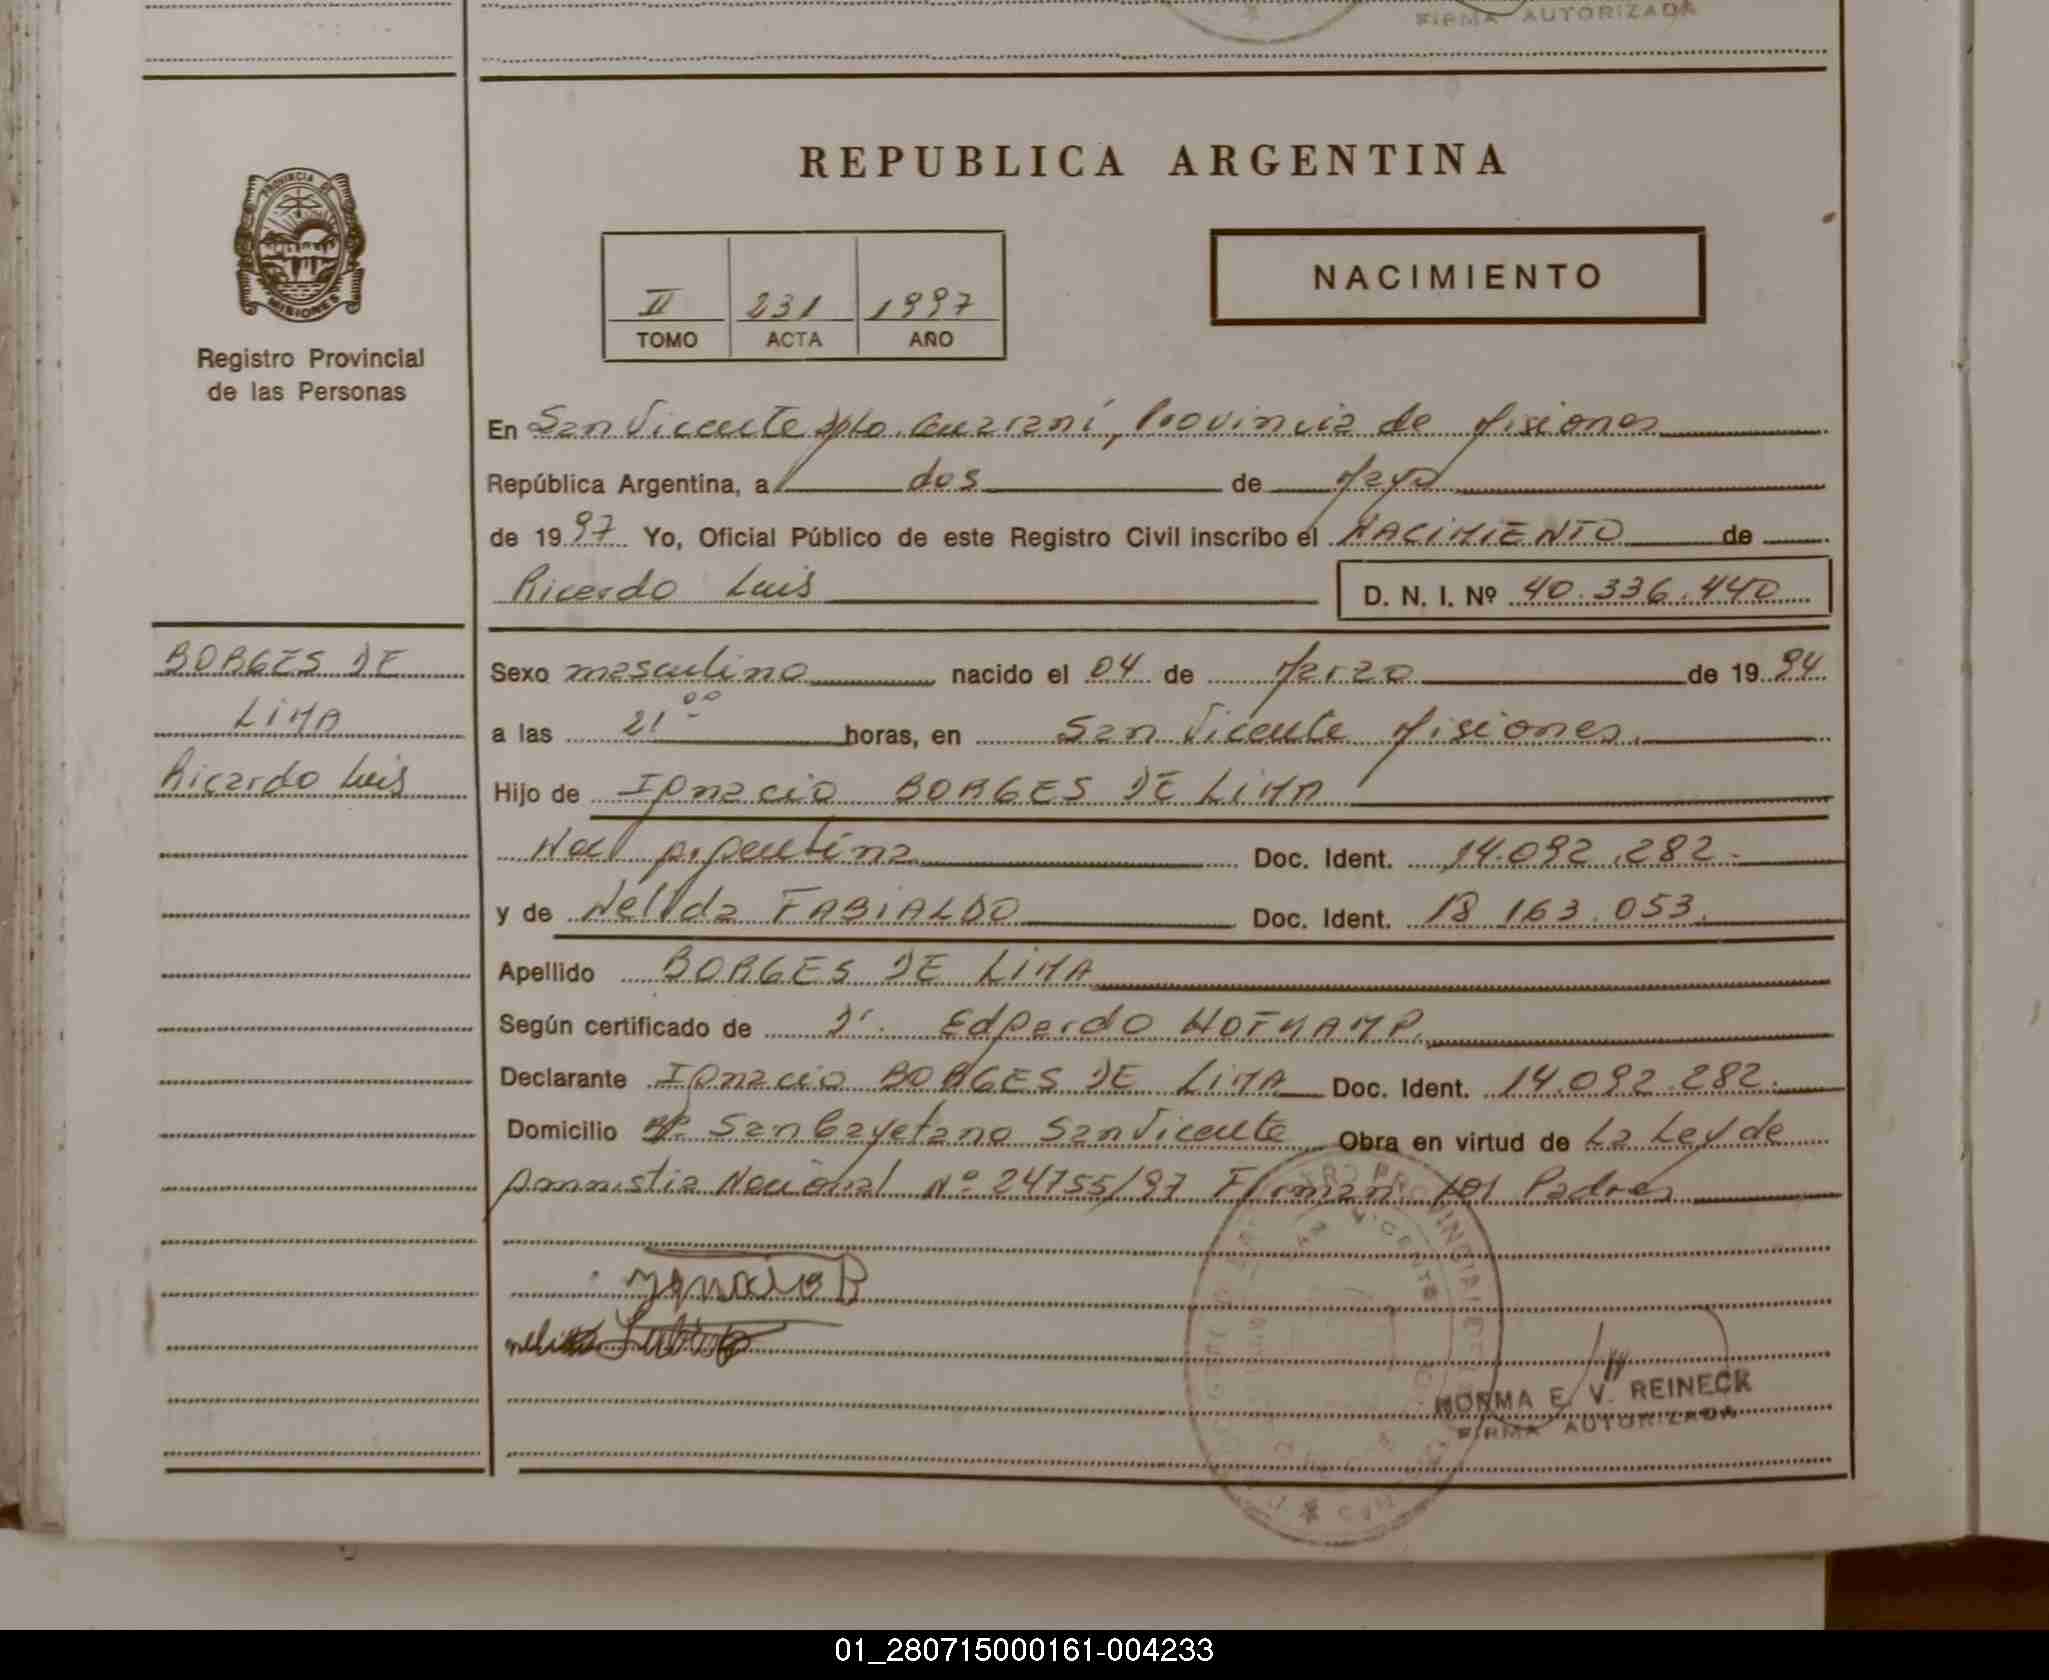 FIRMA AUTORIZADA
PROVINCIA DE
MISIONES
Registro Provincial
de las Personas
REPUBLICA ARGENTINA
II 231 1997
TOMO ACTA AÑO
NACIMIENTO
En San Vicente Dpto. Guaraní, Provincia de Misiones
República Argentina, a dos de Mayo
de 1997 Yo, Oficial Público de este Registro Civil inscribo el NACIMIENTO de
Ricardo Luis D. N. I. Nº 40.336.440
BORGES DE
LIMA
Ricardo Luis
Sexo masculino nacido el 04 de Marzo de 1994
a las 21 00 horas, en San Vicente Misiones.
Hijo de Ignacio BORGES DE LIMA
Nac Argentina Doc. Ident. 14.092.282.
y de Nelida FABIALDO Doc. Ident. 18 163.053.
Apellido BORGES DE LIMA
Según certificado de Dr. Edgardo HOFKAMP.
Declarante Ignacio BORGES DE LIMA Doc. Ident. 14.092.282.
Domicilio Bº San Cayetano San Vicente Obra en virtud de La Ley de
Amnistia Nacional Nº 24755/97 Firman los Padres
Ignacio B
NORMA E. V. REINECK
FIRMA AUTORIZADA
01_280715000161-004233